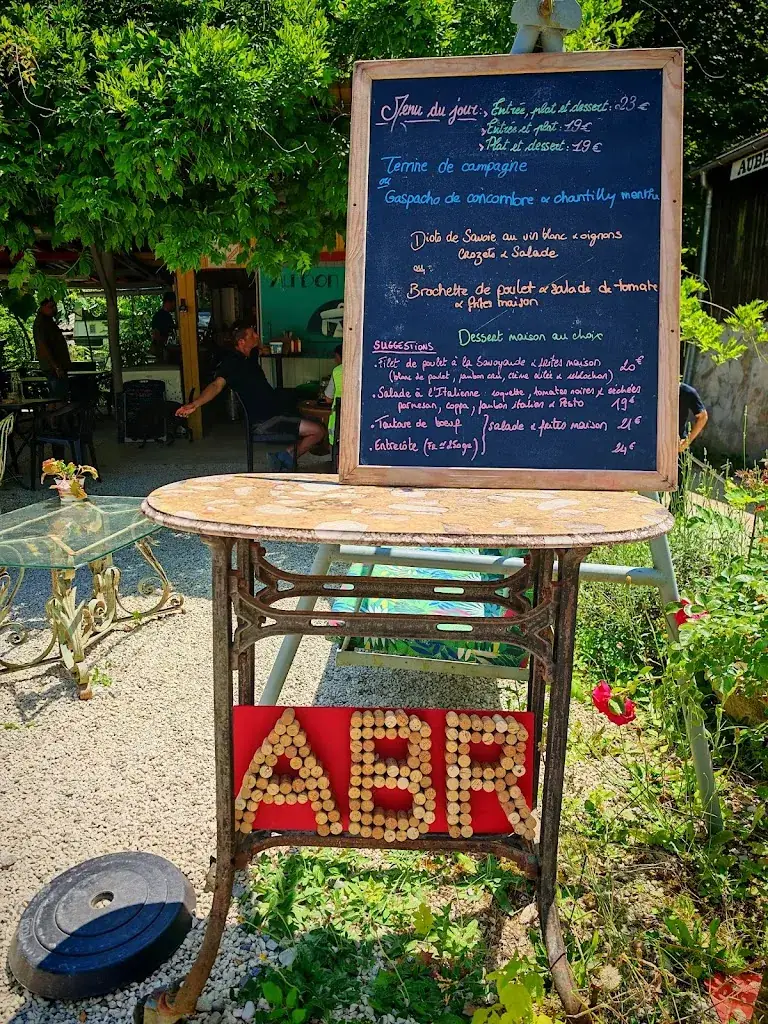 Menu du jour: > Entrée, plat et dessert: 23 €
> Entrée et plat: 19 €
> Plat et dessert: 19 €
Terrine de campagne
ou
Gaspacho de concombre & chantilly menthe
Diots de Savoie au vin blanc & oignons
Crozets & Salade
ou
Brochette de poulet & salade de tomate
& frites maison
Dessert maison au choix
SUGGESTIONS
. Filet de poulet à la Savoyarde & frites maison 20 €
(blanc de poulet, jambon cru, crème ailée & reblochon)
. Salade à l'Italienne: roquette, tomates noires & séchées
parmesan, coppa, jambon italien & Pesto 19 €
. Tartare de boeuf salade & frites maison 21 €
. Entrecôte 24 €
AUBE
ABR